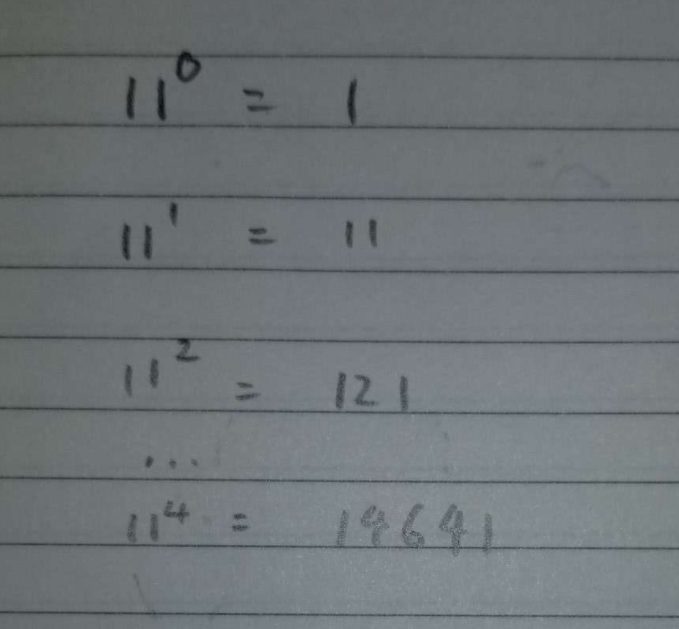 11⁰ = 1
11¹ = 11
11² = 121
...
11⁴ = 14641